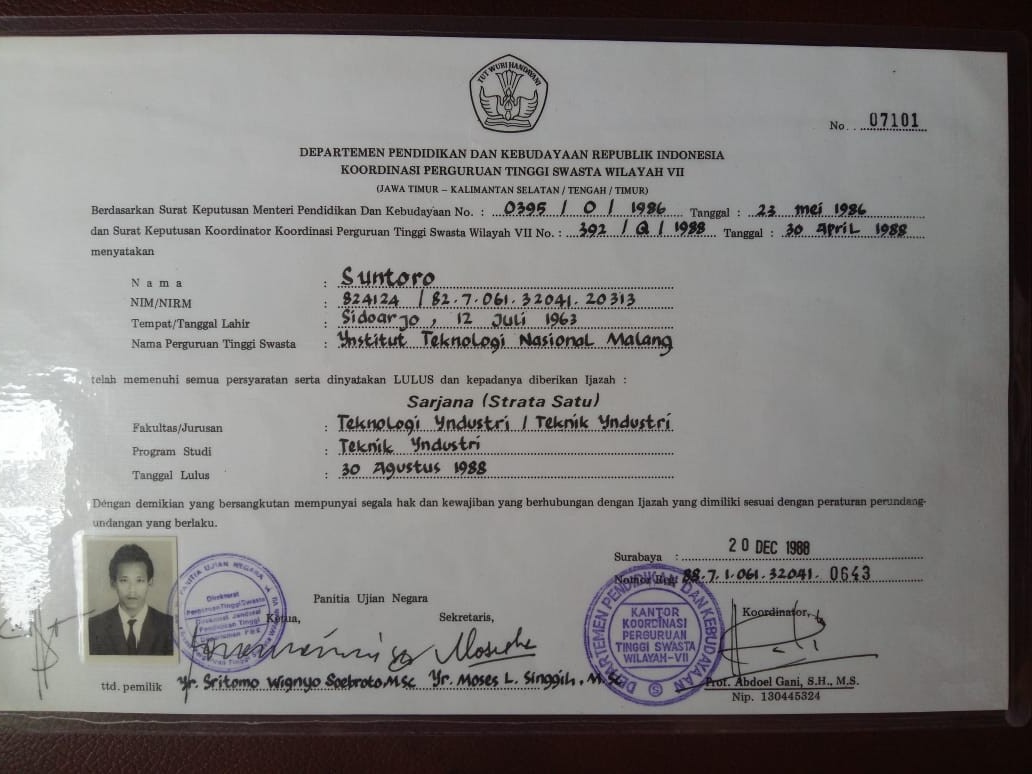 TUT WURI HANDAYANI
No. . 07101
DEPARTEMEN PENDIDIKAN DAN KEBUDAYAAN REPUBLIK INDONESIA
KOORDINASI PERGURUAN TINGGI SWASTA WILAYAH VII
(JAWA TIMUR – KALIMANTAN SELATAN / TENGAH / TIMUR)
Berdasarkan Surat Keputusan Menteri Pendidikan Dan Kebudayaan No. : 0395 / 0 / 1986 Tanggal : 23 mei 1986
dan Surat Keputusan Koordinator Koordinasi Perguruan Tinggi Swasta Wilayah VII No. : 392 / Q / 1988 Tanggal : 30 April 1988
menyatakan
N a m a : Suntoro
NIM/NIRM : 824124 / 82.7.061.32041.20313
Tempat/Tanggal Lahir : Sidoarjo, 12 Juli 1963
Nama Perguruan Tinggi Swasta : Ynstitut Teknologi Nasional Malang
telah memenuhi semua persyaratan serta dinyatakan LULUS dan kepadanya diberikan Ijazah :
Sarjana (Strata Satu)
Fakultas/Jurusan : Teknologi Yndustri / Teknik Yndustri
Program Studi : Teknik Yndustri
Tanggal Lulus : 30 Agustus 1988
Dengan demikian yang bersangkutan mempunyai segala hak dan kewajiban yang berhubungan dengan Ijazah yang dimiliki sesuai dengan peraturan perundang-
undangan yang berlaku.
Surabaya : 20 DEC 1988
Nomor Reg: 88.7.1.061.32041. 0643
Panitia Ujian Negara
Ketua, Sekretaris,
Koordinator,
PANITIA UJIAN NEGARA
Direktorat
Perguruan Tinggi Swasta
Direktorat Jenderal
Pendidikan Tinggi
Departemen P&K
DEPARTEMEN PENDIDIKAN DAN KEBUDAYAAN
KANTOR
KOORDINASI
PERGURUAN
TINGGI SWASTA
WILAYAH-VII
ttd. pemilik Yr. Sritomo Wignyo Soebroto, MSc Yr. Moses L. Singgih, M.Sc
Prof. Abdoel Gani, S.H., M.S.
Nip. 130445324